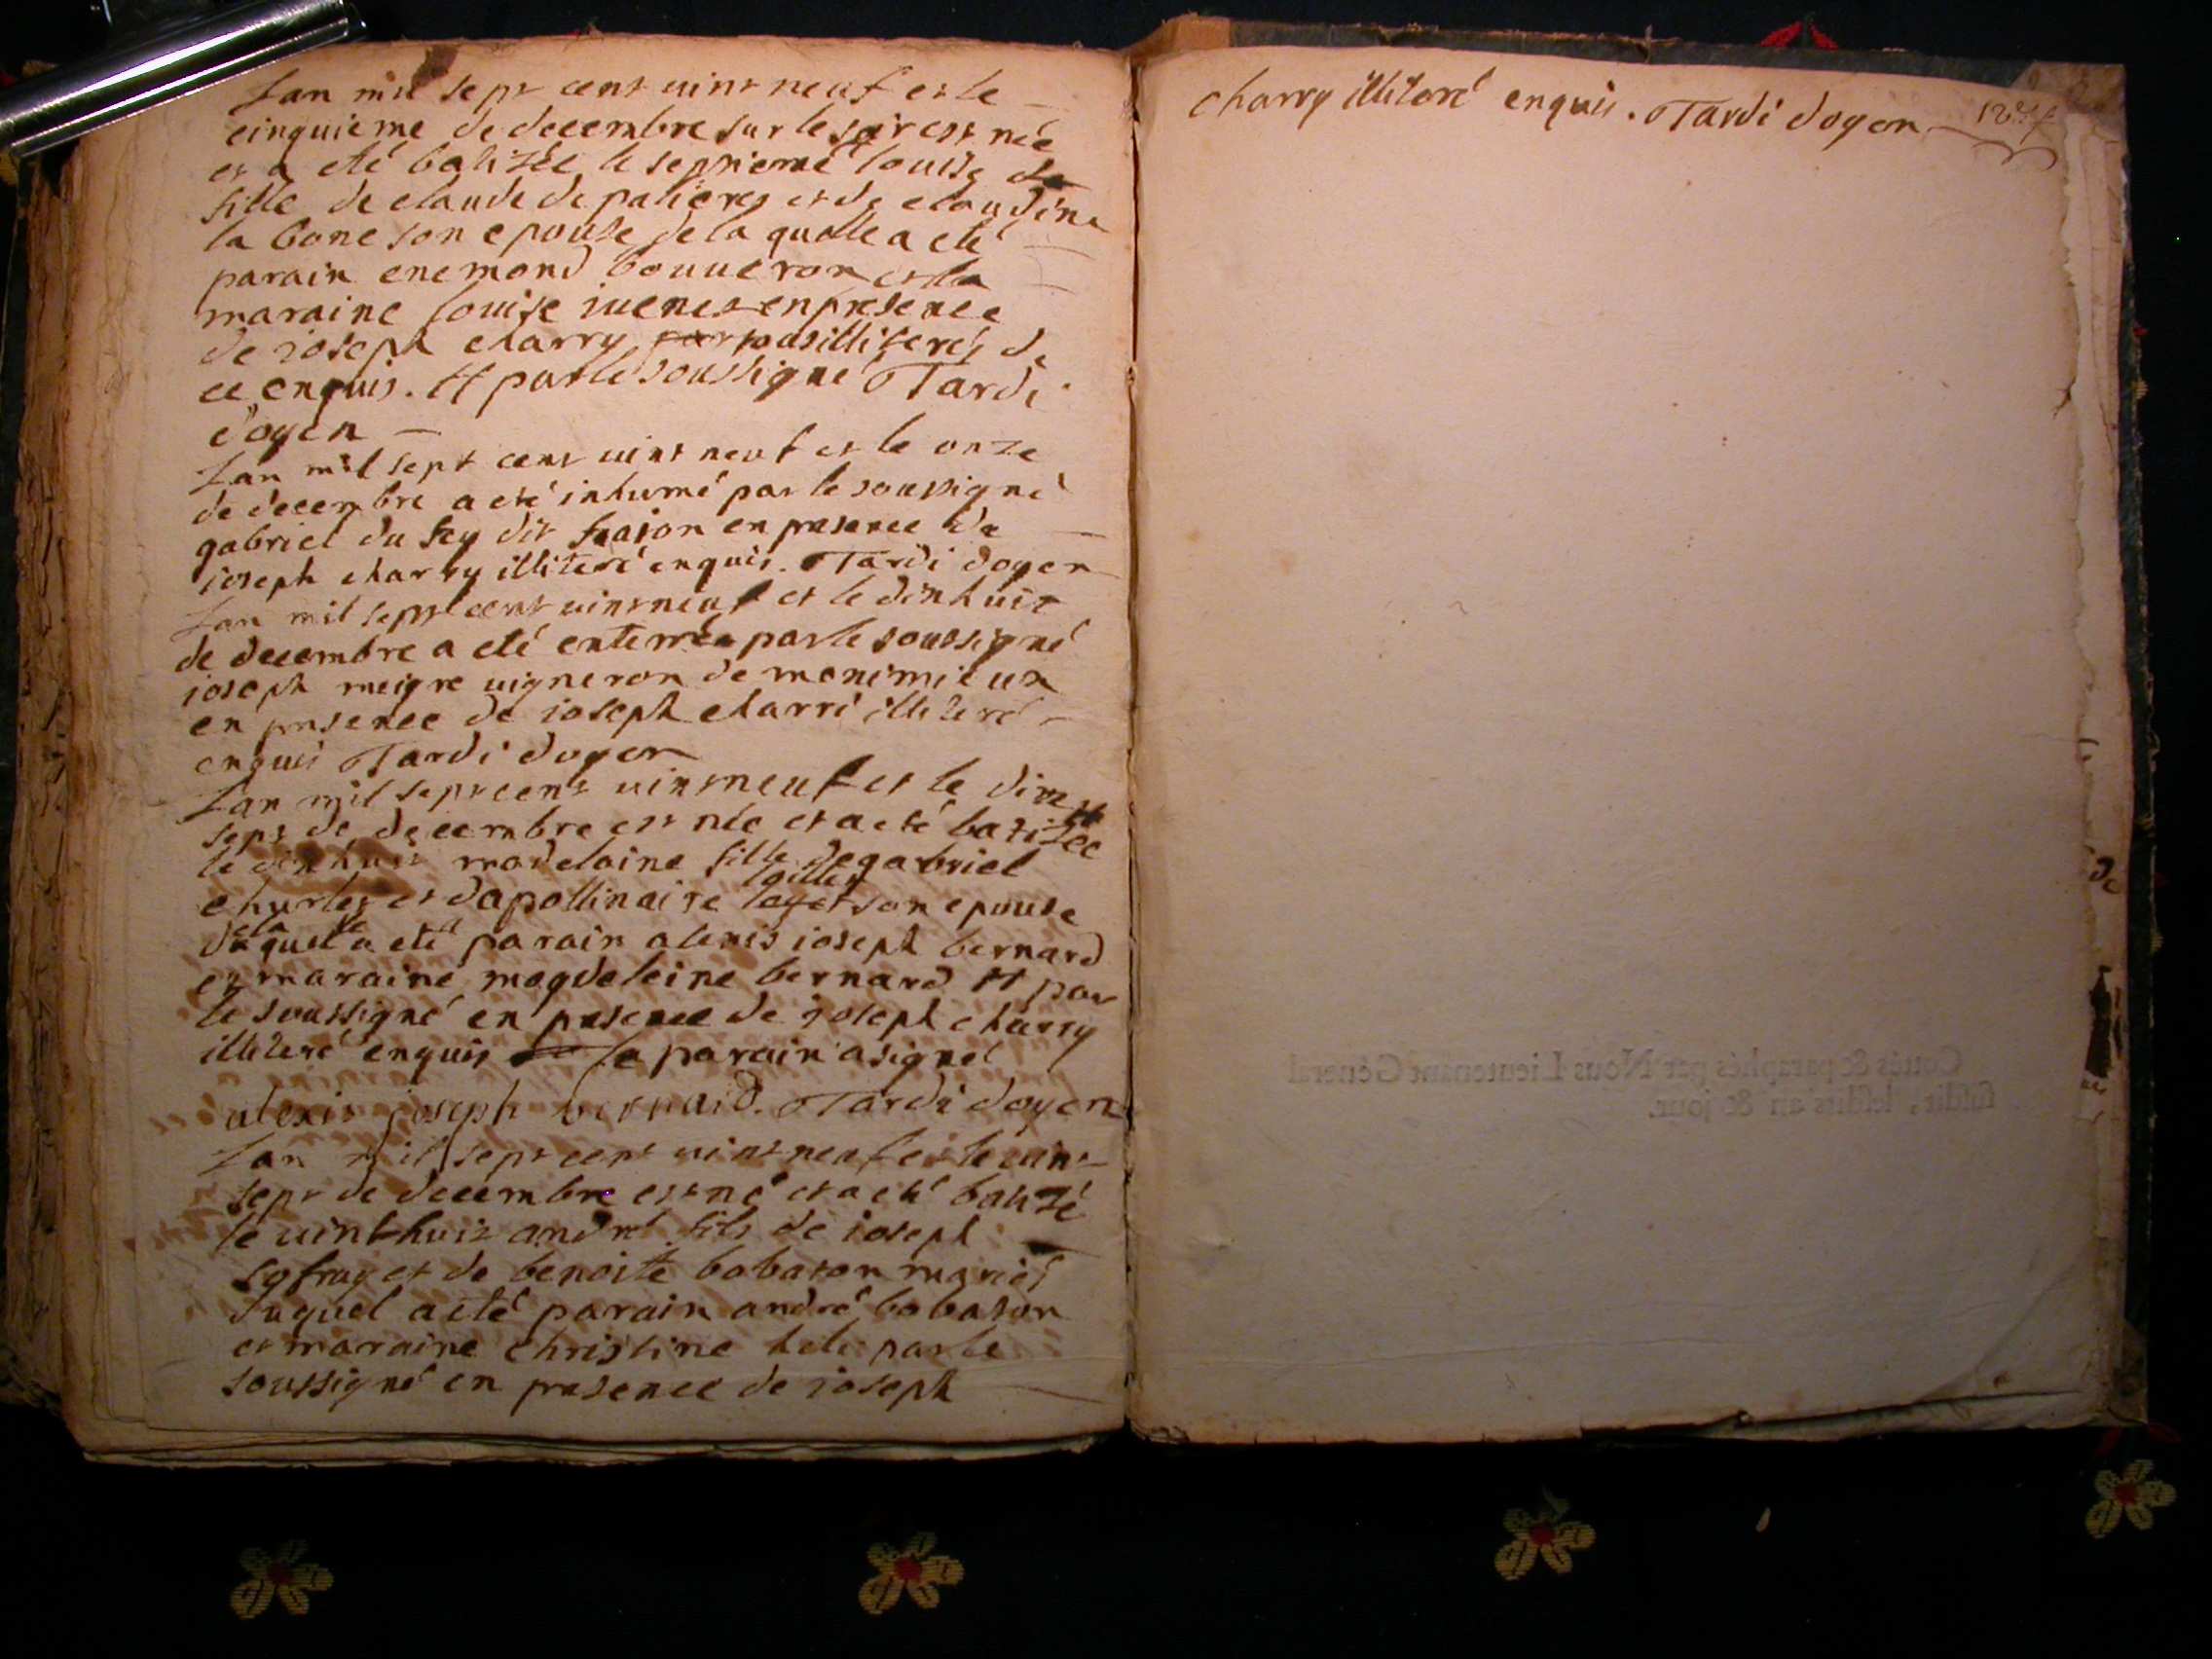 Lan mil sept cent vint neuf et le
cinquieme de decembre sur le soir est née
et a eté batizée le septieme louise
fille de claude de palieres et de claudine
la bone son epouse de la quelle a eté
parain enemond bouueron et la
maraine louise iuenet en presence
de ioseph charry tous illiterés de
ce enquis. et par le soussigné Tardi
doyen
Lan mil sept cent vint neuf et le onze
de decembre a eté inhumé par le soussigné
gabriel du fey dit en presence de
ioseph charry illiteré enquis. Tardi doyen
Lan mil sept cent vint neuf et le dixhuit
de decembre a eté enterré par le soussigné
ioseph meigre vigneron de monimieux
en presence de ioseph charri illiteré
enquis Tardi doyen
Lan mil sept cent vint neuf et le dix
sept de decembre est née et a eté batizée
le dixhuit madelaine fille de gabriel
charles et dapollinaire son epouse
de la quelle a eté parain alexis ioseph bernard
et maraine magdeleine bernard et par
le soussigné en presence de joseph charry
illiteré enquis le parain a signé
alexis joseph bernard. Tardi doyen
Lan mil sept cent vint neuf et le vint
sept de decembre est né et a eté batizé
le vinthuit andré fils de ioseph
et de benoite babaton mariés
duquel a eté parain andré babaton
et maraine christine par le
soussigné en presence de ioseph
charry illiteré enquis. Tardi doyen
de
Cottés & paraphés par Nous Lieutenant Général
susdit, lesdits an & jour.